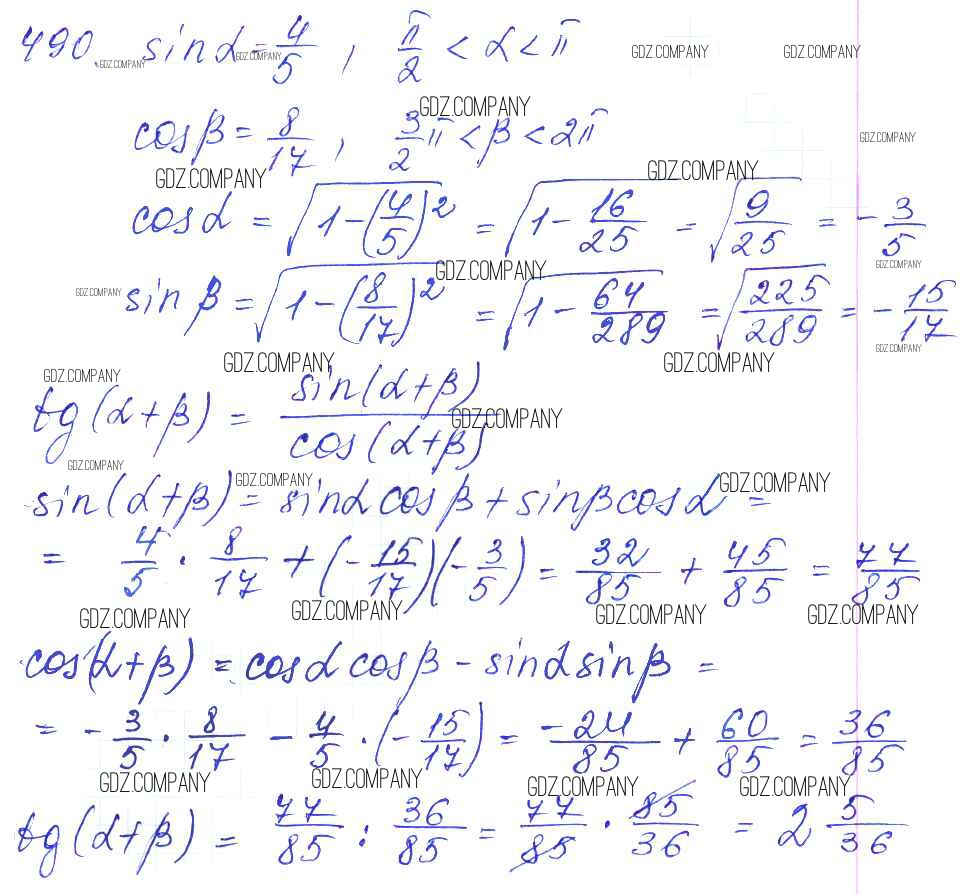 490. sin α = 4/5 , π/2 < α < π
GDZ.COMPANY GDZ.COMPANY GDZ.COMPANY GDZ.COMPANY
GDZ.COMPANY
cos β = 8/17 , 3/2 π < β < 2π
GDZ.COMPANY
GDZ.COMPANY GDZ.COMPANY
cos α = √(1 − (4/5)²) = √(1 − 16/25) = √(9/25) = − 3/5
GDZ.COMPANY GDZ.COMPANY
GDZ.COMPANY
sin β = √(1 − (8/17)²) = √(1 − 64/289) = √(225/289) = − 15/17
GDZ.COMPANY GDZ.COMPANY GDZ.COMPANY
GDZ.COMPANY
tg (α + β) = sin(α + β)/cos(α + β)
GDZ.COMPANY
GDZ.COMPANY GDZ.COMPANY GDZ.COMPANY
sin(α + β) = sin α cos β + sin β cos α =
= 4/5 · 8/17 + (− 15/17)(− 3/5) = 32/85 + 45/85 = 77/85
GDZ.COMPANY GDZ.COMPANY GDZ.COMPANY GDZ.COMPANY
cos(α + β) = cos α cos β − sin α sin β =
= − 3/5 · 8/17 − 4/5 · (− 15/17) = −24/85 + 60/85 = 36/85
GDZ.COMPANY GDZ.COMPANY GDZ.COMPANY GDZ.COMPANY
tg (α + β) = 77/85 : 36/85 = 77/85 · 85/36 = 2 5/36